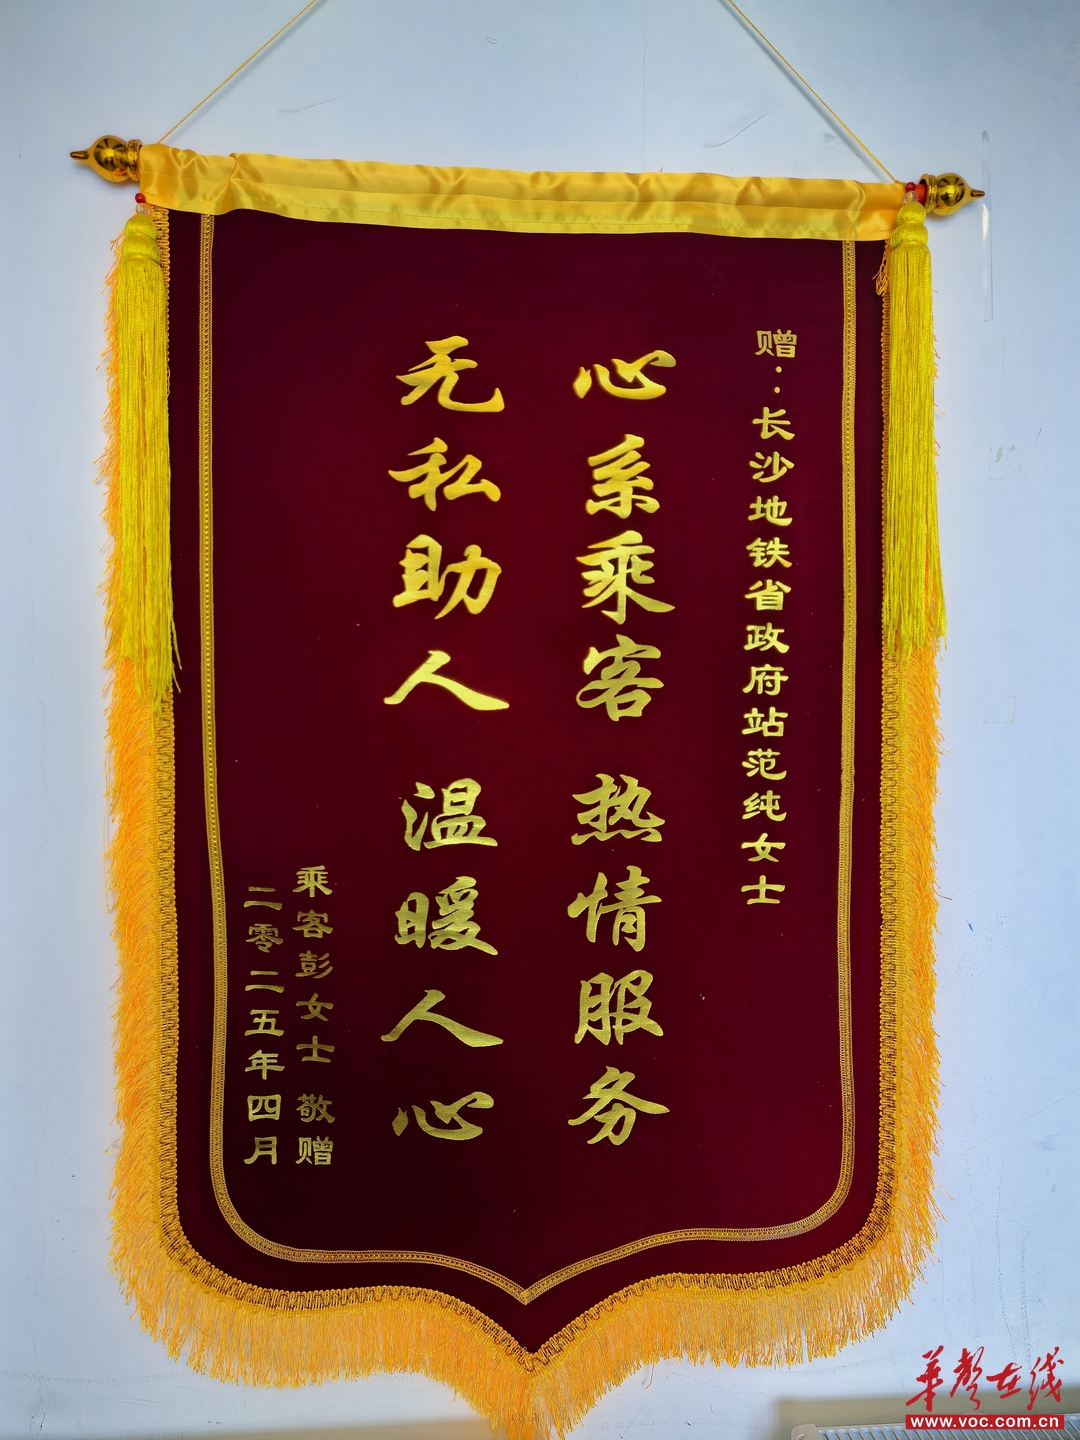 赠:长沙地铁省政府站范纯女士
心系乘客 热情服务
无私助人 温暖人心
乘客彭女士 敬赠
二零二五年四月
华声在线
www.voc.com.cn